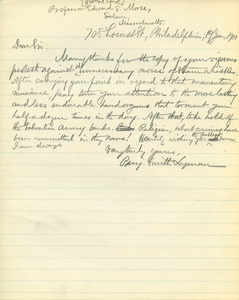 Professor Edward S. Morse,
Salem,
Massachusetts
708 Locust St., Philadelphia, 19 Jan., 1911
Dear Sir:
Many thanks for the copy of your vigorous
protest against the unnecessary noises of
After carrying your point in regard to that momentary
nuisance, pray turn your attention to the more lasting
and less endurable pandoramas that torment you
half a dozen times in the day. After that, take hold of
the Salvation Army bands. Religion, what crimes have
been committed in thy name! Heartily wishing you
I am always
Very truly yours,
Benj. Smith Lyman